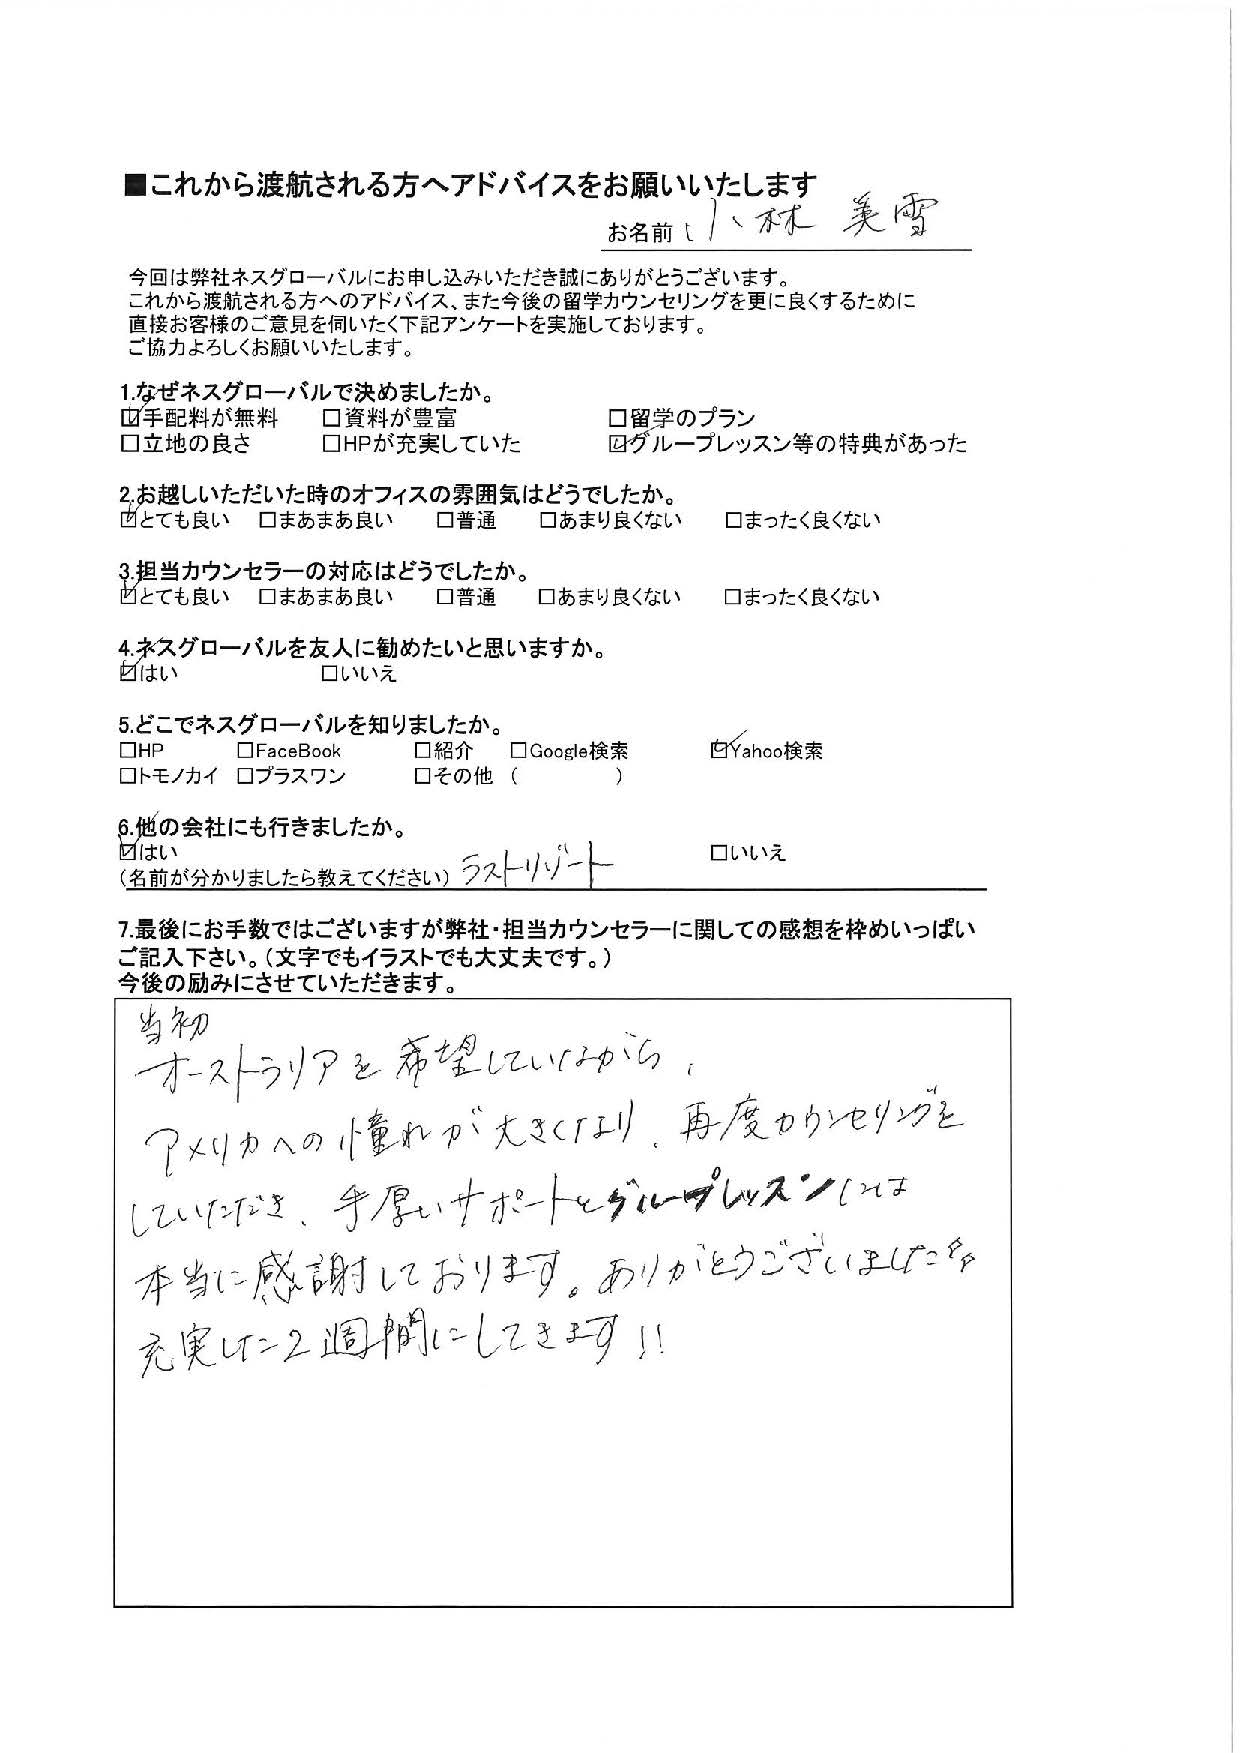 ■これから渡航される方へアドバイスをお願いいたします
お名前 小林 美雪
今回は弊社ネスグローバルにお申し込みいただき誠にありがとうございます。
これから渡航される方へのアドバイス、また今後の留学カウンセリングを更に良くするために
直接お客様のご意見を伺いたく下記アンケートを実施しております。
ご協力よろしくお願いいたします。
1.なぜネスグローバルで決めましたか。
☑手配料が無料 □資料が豊富 □留学のプラン
□立地の良さ □HPが充実していた ☑グループレッスン等の特典があった
2.お越しいただいた時のオフィスの雰囲気はどうでしたか。
☑とても良い □まあまあ良い □普通 □あまり良くない □まったく良くない
3.担当カウンセラーの対応はどうでしたか。
☑とても良い □まあまあ良い □普通 □あまり良くない □まったく良くない
4.ネスグローバルを友人に勧めたいと思いますか。
☑はい □いいえ
5.どこでネスグローバルを知りましたか。
□HP □FaceBook □紹介 □Google検索 ☑Yahoo検索
□トモノカイ □プラスワン □その他（ ）
6.他の会社にも行きましたか。
☑はい □いいえ
（名前が分かりましたら教えてください）ラストリゾート
7.最後にお手数ではございますが弊社・担当カウンセラーに関しての感想を枠めいっぱい
ご記入下さい。（文字でもイラストでも大丈夫です。）
今後の励みにさせていただきます。
当初
オーストラリアを希望していながら、
アメリカへの憧れが大きくなり、再度カウンセリングを
していただき、手厚いサポートとグループレッスンには
本当に感謝しております。ありがとうございました
充実した2週間にしてきます!!